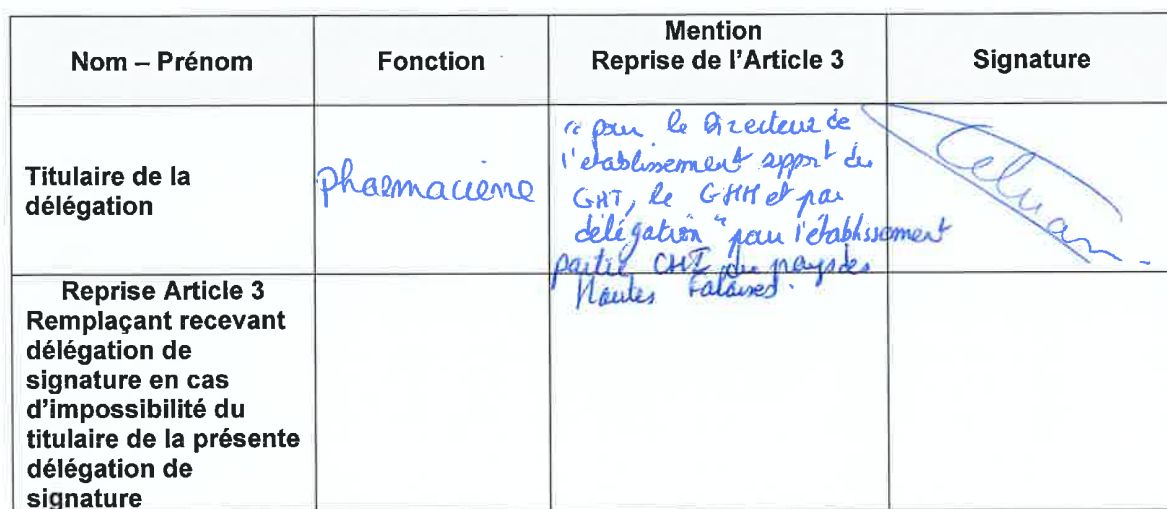 Nom – Prénom
Fonction
Mention
Reprise de l'Article 3
Signature
Titulaire de la
délégation
pharmaciene
"pour le Directeur de
l'etablissement support du
GHT, le GHH et par
délégation" pour l'établissement
partie CHI du pays des
Hautes Falaises.
Reprise Article 3
Remplaçant recevant
délégation de
signature en cas
d'impossibilité du
titulaire de la présente
délégation de
signature